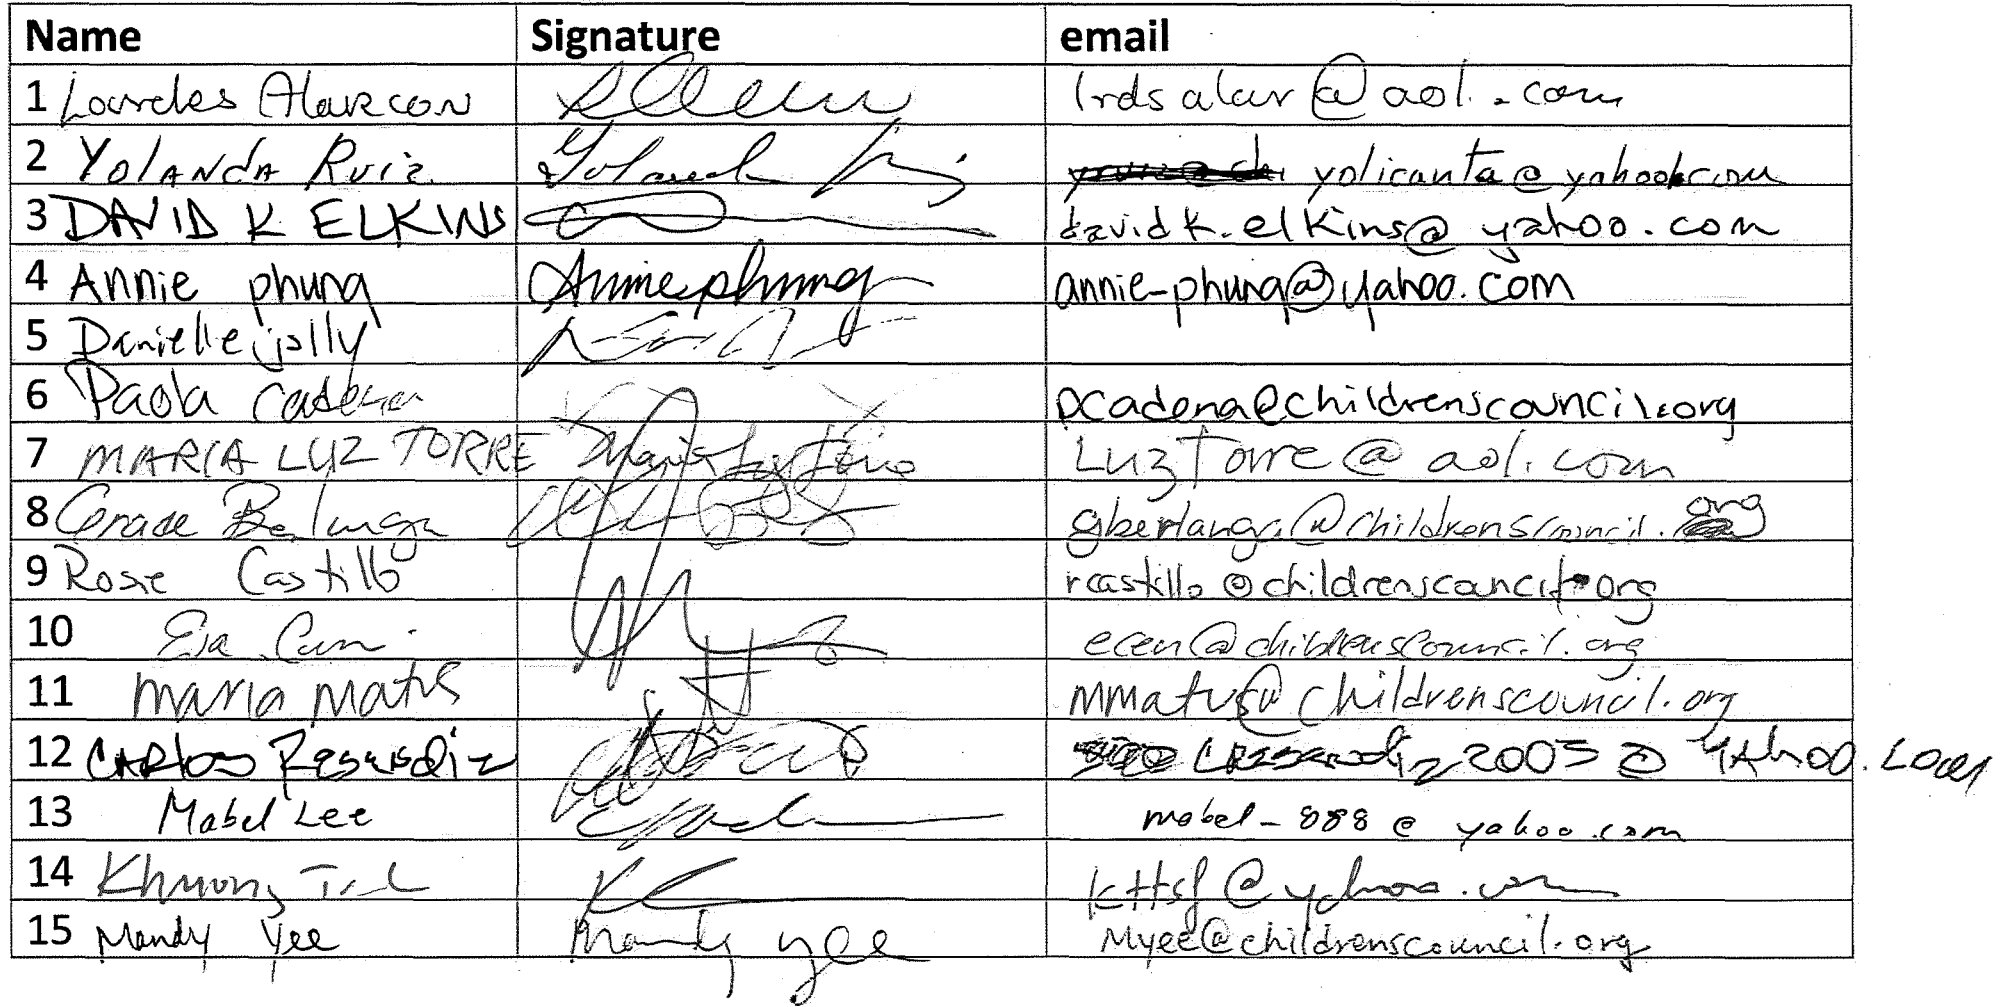 Name Signature email
1 Lourdes Alarcon lrdsalar@aol.com
2 Yolanda Ruiz Yolanda yolicanta@yahoo.com
3 DAVID K ELKINS davidk.elkins@yahoo.com
4 Annie phung Annie phung annie-phung@yahoo.com
5 Danielle jolly
6 Paola Cadena pcadena@childrenscouncil.org
7 MARIA LUZ TORRE Maria Luz Torre LuzTorre@aol.com
8 Grace Berlanga gberlanga@childrenscouncil.org
9 Rosie Castillo rcastillo@childrenscouncil.org
10 Eva ecen@childrenscouncil.org
11 Maria Matus mmatus@childrenscouncil.org
12 CARlos Resendiz 2003@YAhoo.com
13 Mabel Lee mabel-888@yahoo.com
14 Khuong kttsf@yahoo.com
15 Mandy Yee Mandy yee Myee@childrenscouncil.org